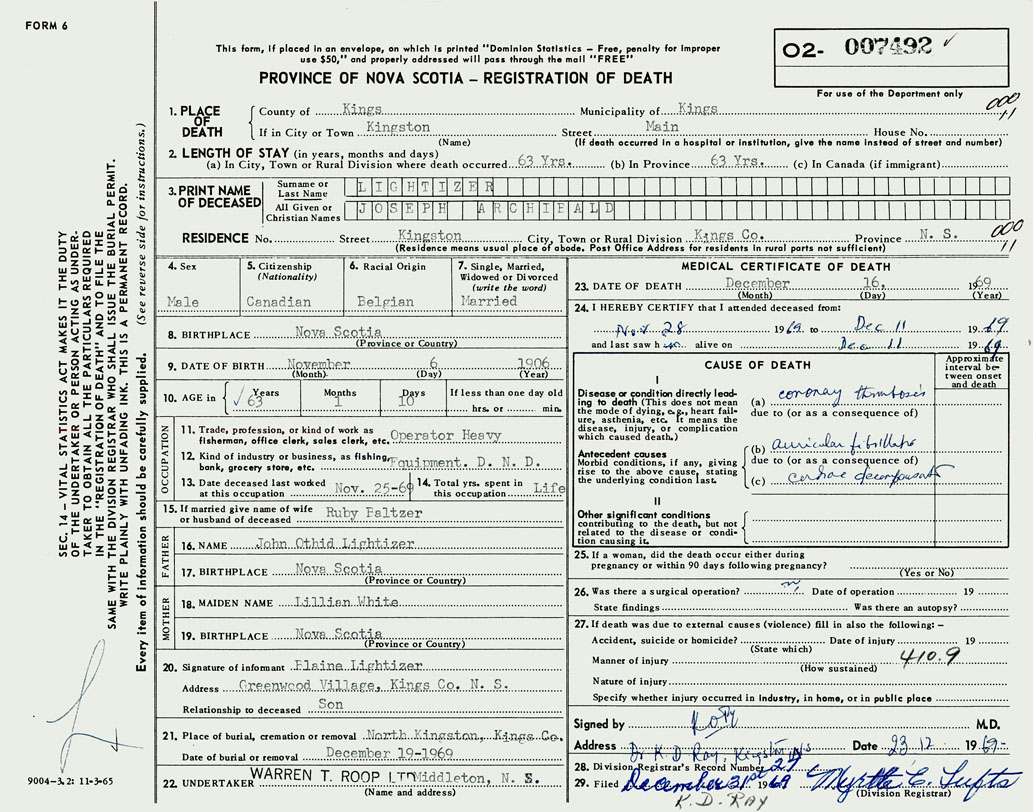 FORM 6
This form, if placed in an envelope, on which is printed "Dominion Statistics – Free, penalty for improper
use $50," and properly addressed will pass through the mail "FREE"
PROVINCE OF NOVA SCOTIA – REGISTRATION OF DEATH
02- 007492 ✓
For use of the Department only
000
11
1. PLACE OF DEATH
County of Kings Municipality of Kings
If in City or Town Kingston Street Main House No.
(Name) (If death occurred in a hospital or institution, give the name instead of street and number)
2. LENGTH OF STAY (in years, months and days)
(a) In City, Town or Rural Division where death occurred 63 Yrs. (b) In Province 63 Yrs. (c) In Canada (if immigrant)
3. PRINT NAME OF DECEASED
Surname or Last Name LIGHTIZER
All Given or Christian Names JOSEPH ARCHIBALD
RESIDENCE No. Street Kingston City, Town or Rural Division Kings Co. Province N. S.
(Residence means usual place of abode. Post Office Address for residents in rural parts not sufficient)
000
11
4. Sex
Male
5. Citizenship
(Nationality)
Canadian
6. Racial Origin
Belgian
7. Single, Married,
Widowed or Divorced
(write the word)
Married
8. BIRTHPLACE Nova Scotia
(Province or Country)
9. DATE OF BIRTH November 6 1906
(Month) (Day) (Year)
10. AGE in ✓ Years 63 Months 1 Days 10 If less than one day old
hrs. or min.
OCCUPATION
11. Trade, profession, or kind of work as
fisherman, office clerk, sales clerk, etc. Operator Heavy
12. Kind of industry or business, as fishing,
bank, grocery store, etc. Equipment. D. N. D.
13. Date deceased last worked
at this occupation Nov. 25-69
14. Total yrs. spent in
this occupation Life
15. If married give name of wife
or husband of deceased Ruby Baltzer
FATHER
16. NAME John Othid Lightizer
17. BIRTHPLACE Nova Scotia
(Province or Country)
MOTHER
18. MAIDEN NAME Lillian White
19. BIRTHPLACE Nova Scotia
(Province or Country)
20. Signature of informant Blaine Lightizer
Address Greenwood Village, Kings Co. N. S.
Relationship to deceased Son
21. Place of burial, cremation or removal North Kingston, Kings Co.
Date of burial or removal December 19-1969
22. UNDERTAKER WARREN T. ROOP LTD Middleton, N. S.
(Name and address)
MEDICAL CERTIFICATE OF DEATH
23. DATE OF DEATH December 16, 1969
(Month) (Day) (Year)
24. I HEREBY CERTIFY that I attended deceased from:
Nov 28 1969 to Dec 11 1969
and last saw him alive on Dec 11 1969
CAUSE OF DEATH
Approximate
interval be-
tween onset
and death
I
Disease or condition directly lead-
ing to death (This does not mean
the mode of dying, e.g., heart fail-
ure, asthenia, etc. It means the
disease, injury, or complication
which caused death.)
(a) coronary thrombosis
due to (or as a consequence of)
Antecedent causes
Morbid conditions, if any, giving
rise to the above cause, stating
the underlying condition last.
(b) auricular fibrillation
due to (or as a consequence of)
(c) cardiac decompensation
II
Other significant conditions
contributing to the death, but not
related to the disease or condi-
tion causing it.
25. If a woman, did the death occur either during
pregnancy or within 90 days following pregnancy?
(Yes or No)
26. Was there a surgical operation? Date of operation 19
State findings Was there an autopsy?
27. If death was due to external causes (violence) fill in also the following: –
Accident, suicide or homicide? Date of injury 19
(State which)
Manner of injury 410.9
(How sustained)
Nature of injury
Specify whether injury occurred in industry, in home, or in public place
Signed by M.D.
Address Dr K D Ray, Kingston NS Date 23 12 1969
28. Division Registrar's Record Number 27
29. Filed December 31st 1969 Myrtle C. Tufts
(Division Registrar)
K. D. RAY
SEC. 14 – VITAL STATISTICS ACT MAKES IT THE DUTY
OF THE UNDERTAKER OR PERSON ACTING AS UNDER-
TAKER TO OBTAIN ALL THE PARTICULARS REQUIRED
IN THE "REGISTRATION OF DEATH" AND TO FILE THE
SAME WITH THE DIVISION REGISTRAR WHO SHALL ISSUE THE BURIAL PERMIT.
WRITE PLAINLY WITH UNFADING INK. THIS IS A PERMANENT RECORD.
Every item of information should be carefully supplied. (See reverse side for instructions.)
9004-3.2: 11-3-65